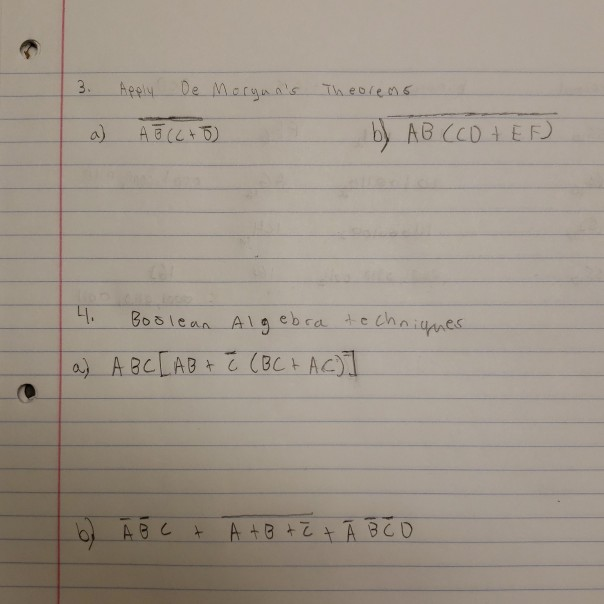 3. Apply De Morgan's Theorems
a) A̅B̅̅(̅C̅+̅D̅̅)̅ b) A̅B̅(̅C̅D̅+̅E̅F̅)̅
4. Boolean Algebra techniques
a) ABC[AB + C̅ (BC + AC)]
b) A̅ B̅ C + A̅+̅B̅+̅C̅̅ + A̅ B̅ C̅ D